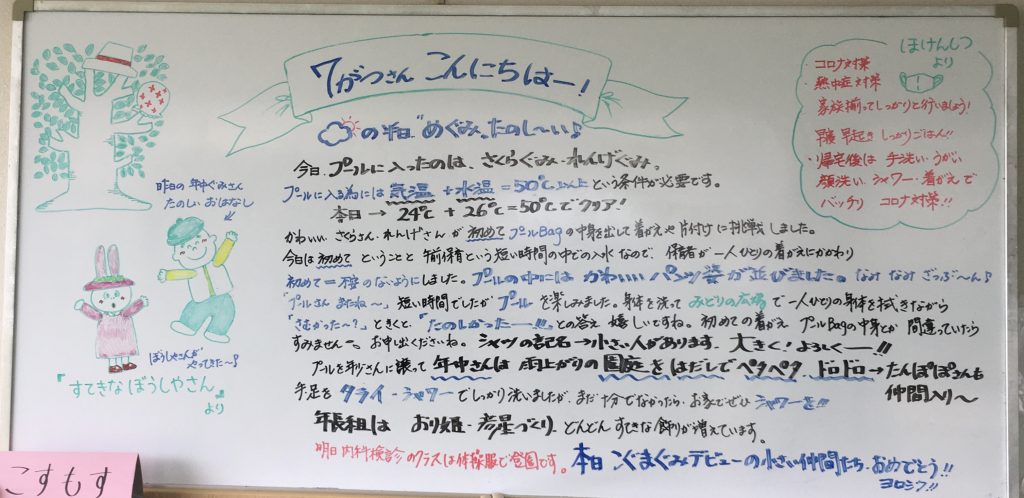 7がつさん こんにちはー!
の半日"めぐみ"たのし〜い♪
今日 プールに入ったのは、さくらぐみ・れんげぐみ。
プールに入る為には 気温 + 水温 = 50℃以上 という条件が必要です。
本日 → 24℃ + 26℃ = 50℃でクリア!
かわいい さくらさん・れんげさんが 初めて プールBagの中身を出して着がえや片付けに挑戦しました。
今日は初めて ということと 午前保育という短い時間の中での入水なので、保育者が一人ひとりの着がえにかかわり
しました。プールの中には かわいいパンツ姿が並びました。なみ なみ ざっぶ〜ん♪
「プールさん またね〜」短い時間でしたが プールを楽しみました。身体を洗って みどりの広場で一人ひとりの身体を拭きながら
「さむかった〜?」ときくと、「たのしかったー!!!」との答え 嬉しいですね。初めての着がえ プールBagの中身とか 間違っていたら
すみませんー。お申し出くださいね。シャツの記名→小さい人があります。大きく!よろしくー!!
プールを年少さんに譲って 年中さんは 雨上がりの園庭をはだしでペタペタ、ドロドロ→たんぽぽさんも
仲間入り〜
手足を タライ・シャワーでしっかり洗いましたが、まだ十分でなかったら・お家でぜひ シャワーを!!
年長組は おり姫・彦星づくり。どんどん すてきな飾りが増えています。
明日 内科検診のクラスは体操服で登園です。本日 こぐまぐみデビューの小さい仲間たち・おめでとう!!
ヨロシク!!
ほけんしつ
より
・コロナ対策
・熱中症対策
家族揃ってしっかりと行いましょう!
早寝 早起き しっかりごはん!!
・帰宅後は 手洗い・うがい
顔洗い・シャワー・着がえで
バッチリ コロナ対策!!
昨日の年中ぐみさん
たのしいおはなし
ぼうしやさんが
やってきた〜♪
『すてきなぼうしやさん』
より
こすもす